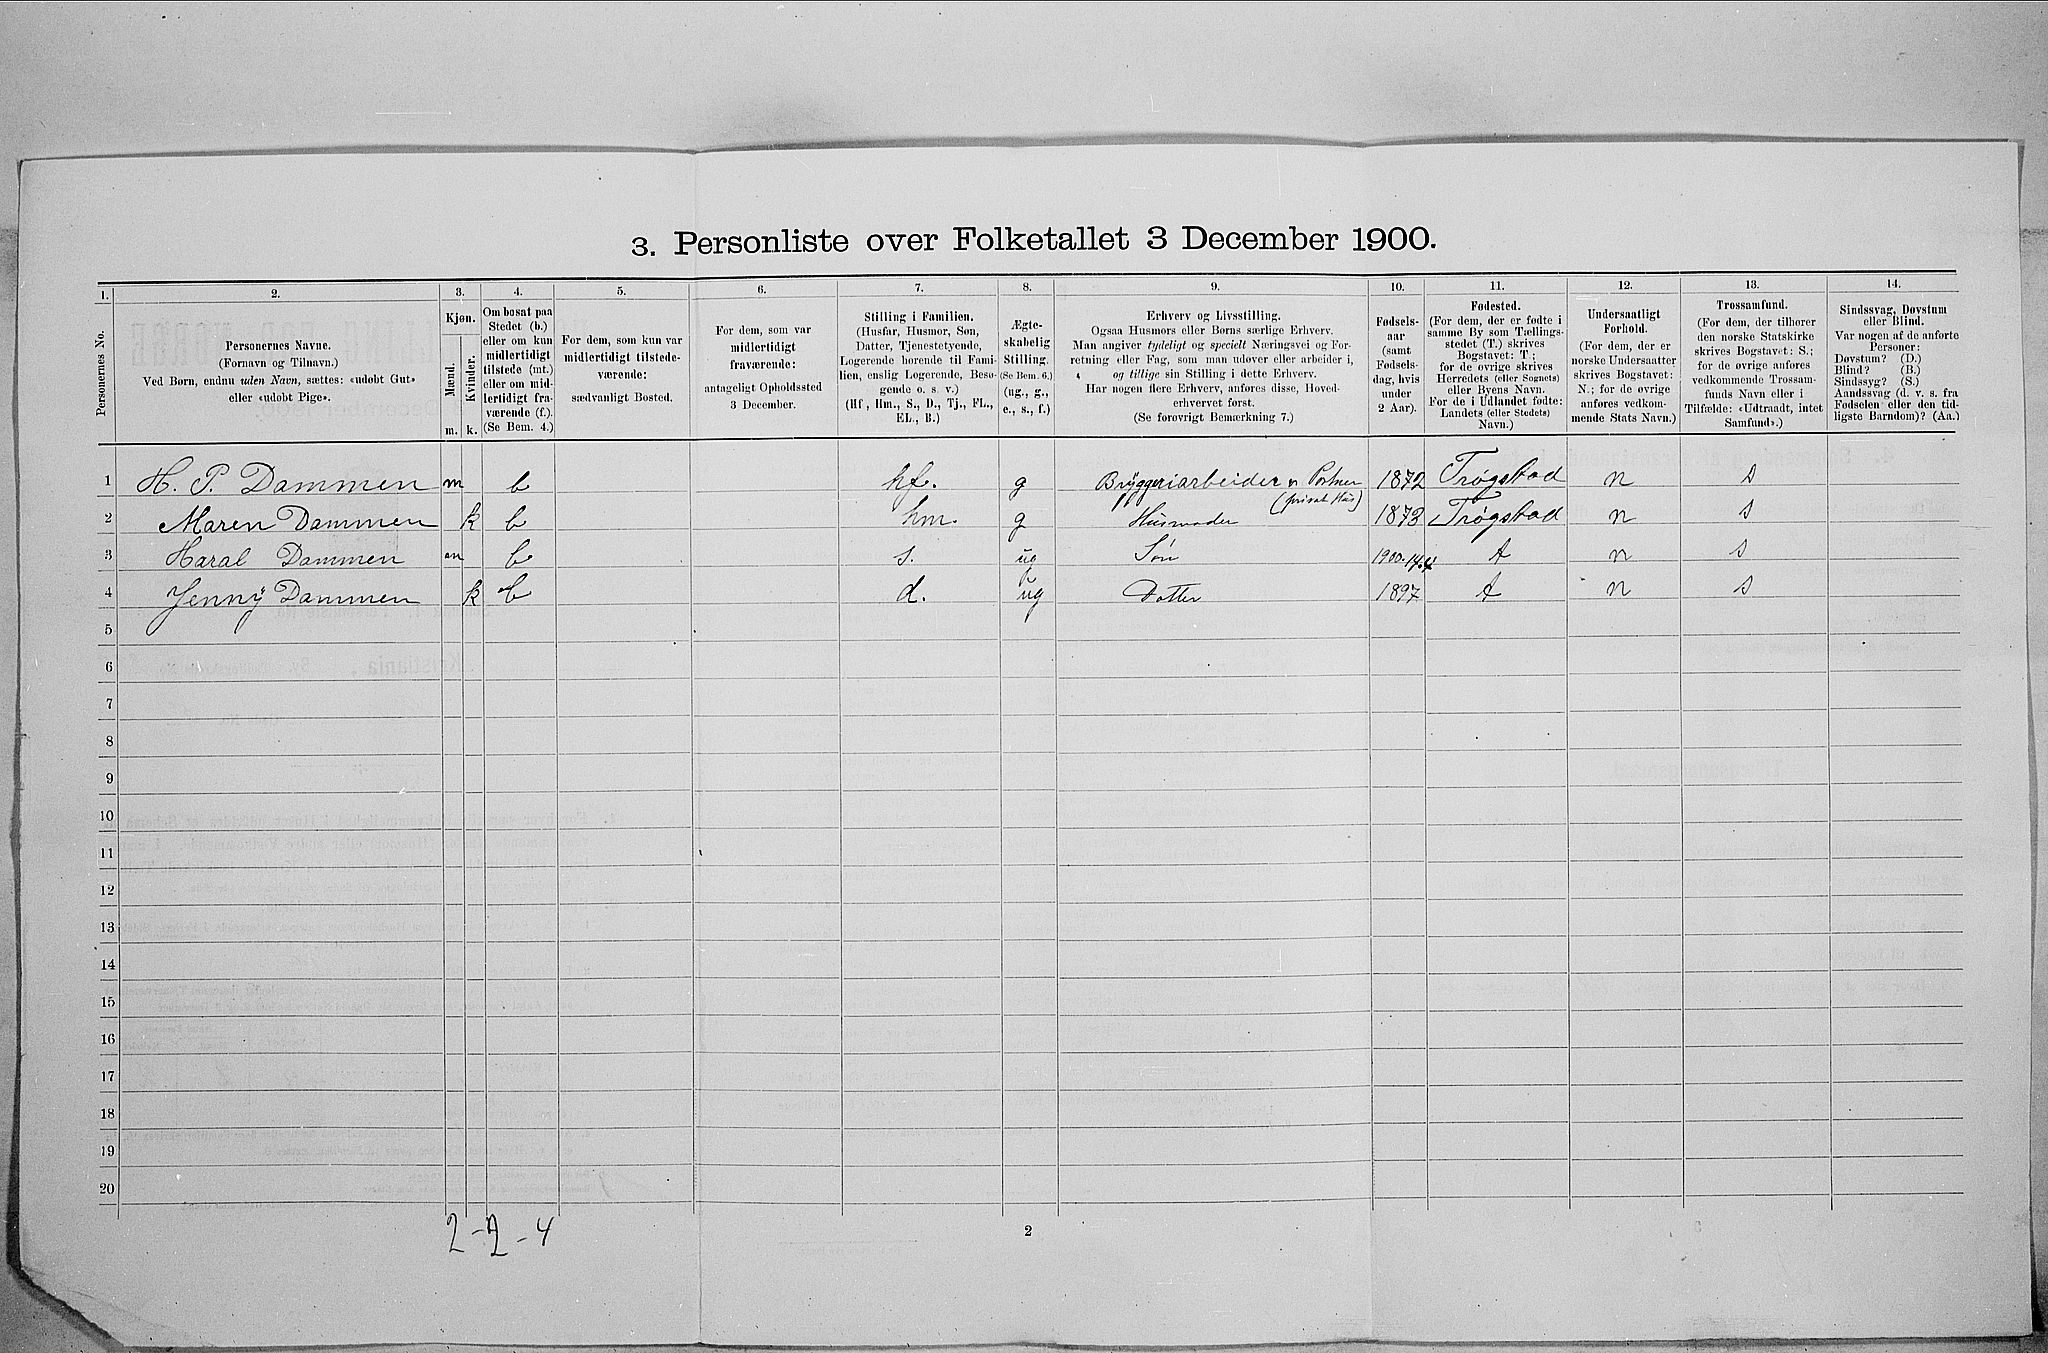 3. Personliste over Folketallet 3 December 1900.
1. 2. 3. 4. 5. 6. 7. 8. 9. 10. 11. 12. 13. 14.
Personernes No.
Personernes Navne.
(Fornavn og Tilnavn.)
Ved Børn, endnu uden Navn, sættes: «udøbt Gut»
eller «udøbt Pige».
Kjøn.
Mænd.
Kvinder.
m. k.
Om bosat paa
Stedet (b.)
eller om kun
midlertidigt
tilstede (mt.)
eller om mid-
lertidigt fra-
værende (f.).
(Se Bem. 4.)
For dem, som kun var
midlertidigt tilstede-
værende:
sædvanligt Bosted.
For dem, som var
midlertidigt
fraværende:
antageligt Opholdssted
3 December.
Stilling i Familien.
(Husfar, Husmor, Søn,
Datter, Tjenestetyende,
Logerende hørende til Fami-
lien, enslig Logerende, Besø-
gende o. s. v.)
(Hf., Hm., S., D., Tj., FL.,
EL., B.)
Ægte-
skabelig
Stilling.
(Se Bem. 6.)
(ug., g.,
e., s., f.)
Erhverv og Livsstilling.
Ogsaa Husmors eller Børns særlige Erhverv.
Man angiver tydeligt og specielt Næringsvei og For-
retning eller Fag, som man udøver eller arbeider i,
og tillige sin Stilling i dette Erhverv.
Har nogen flere Erhverv, anføres disse, Hoved-
erhvervet først.
(Se forøvrigt Bemærkning 7.)
Fødsels-
aar
(samt
Fødsels-
dag, hvis
under
2 Aar).
Fødested.
(For dem, der er fødte i
samme By som Tællings-
stedet (T.) skrives
Bogstavet: T.;
for de øvrige skrives
Herredets (eller Sognets)
eller Byens Navn.
For de i Udlandet fødte:
Landets (eller Stedets)
Navn.)
Undersaatligt
Forhold.
(For dem, der er
norske Undersaatter,
skrives Bogstavet:
N.; for de øvrige
anføres vedkom-
mende Stats Navn.)
Trossamfund.
(For dem, der tilhører
den norske Statskirke
skrives Bogstavet: S.;
for de øvrige anføres
vedkommende Trossam-
funds Navn eller i
Tilfælde: «Udtraadt, intet
Samfund».)
Sindssvag, Døvstum
eller Blind.
Var nogen af de anførte
Personer:
Døvstum? (D.)
Blind? (B.)
Sindssyg? (S.)
Aandssvag (d. v. s. fra
Fødselen eller den tid-
ligste Barndom)? (Aa.)
1 H. P. Dammen m b hf. g Bryggeriarbeider Portner 1872 Trøgstad n s
(privat Hus)
2 Maren Dammen k b hm. g Husmoder 1873 Trøgstad n s
3 Haral Dammen m b s. ug Søn 1900-14.4 n s
4 Jenny Dammen k b d. ug Datter 1897 n s
5
6
7
8
9
10
11
12
13
14
15
16
17
18
19
20
2-2-4
2